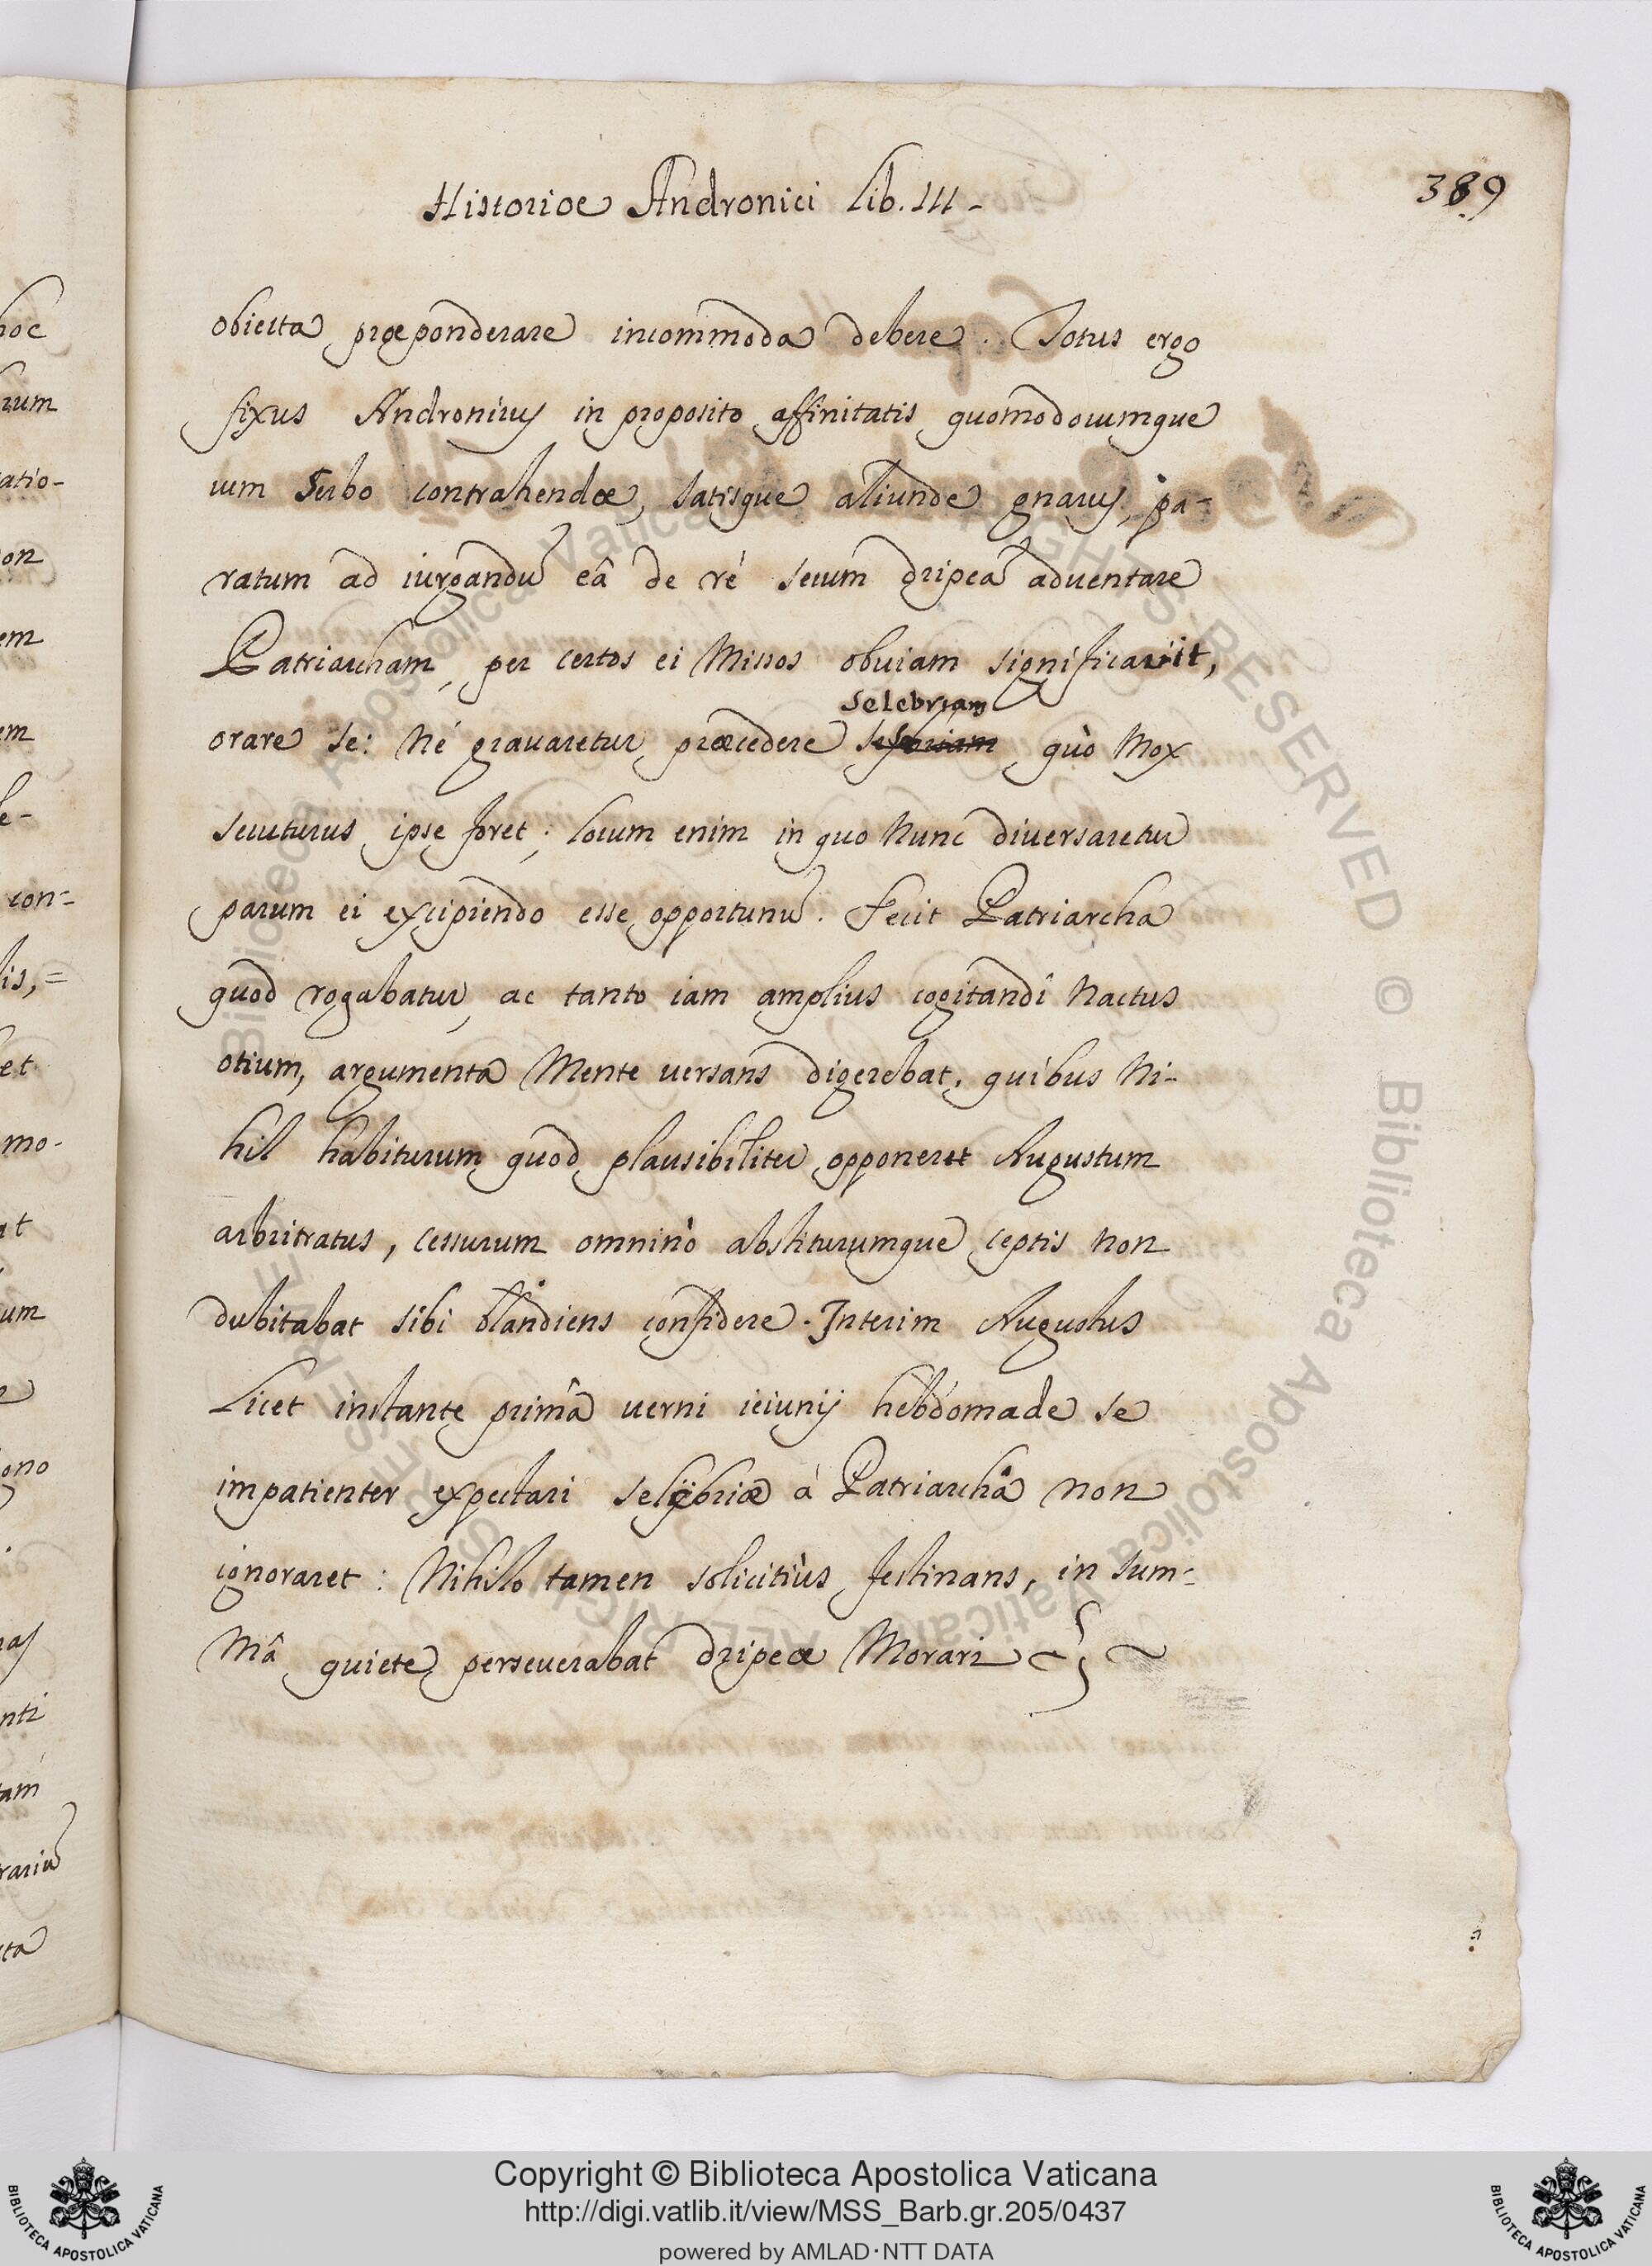 Historiæ Andronici Lib. III.
389
obiecta præponderare incommoda debere. Totus ergo
fixus Andronicus in proposito affinitatis quomodocumque
cum Serbo contrahendæ, satisque aliunde gnarus, pa-
ratum ad iurgandũ eâ de ré secum dripeã adventare
Patriarcham, per certos ei Missos obuiam significavit,
Selebriam
orare se: né grauaretur præcedere quò Mox
secuturus ipse foret; locum enim in quo Nunc diuersaretur
parum ei excipiendo esse opportunũ. Fecit Patriarcha
quod rogabatur, ac tanto iam amplius cogitandi Nactus
otium, argumenta Mente uersans digerebat, quibus Ni-
hil habiturum quod plausibiliter opponeret Augustum
arbitratus, cessurum omninò abstiturumque ceptis non
dubitabat sibi blandiens confidere. Interim Augustus
Licet instante primâ uerni ieiunij hebdomade se
impatienter expectari selebriæ à Patriarchâ non
ignoraret: Nihilo tamen solicitiùs festinans, in sum-
Mâ quiete perseuerabat dripeæ Morari
hoc
rum
ratio-
on
em
em
le-
con-
lis,=
et
mo-
at
um
ono
nti
tam
rariũ
cta
Biblioteca Apostolica Vaticana ALL RIGHTS RESERVED © Biblioteca Apostolica Vaticana ALL RIGHTS RESERVED
BIBLIOTECA APOSTOLICA VATICANA
Copyright © Biblioteca Apostolica Vaticana
http://digi.vatlib.it/view/MSS_Barb.gr.205/0437
powered by AMLAD·NTT DATA
BIBLIOTECA APOSTOLICA VATICANA